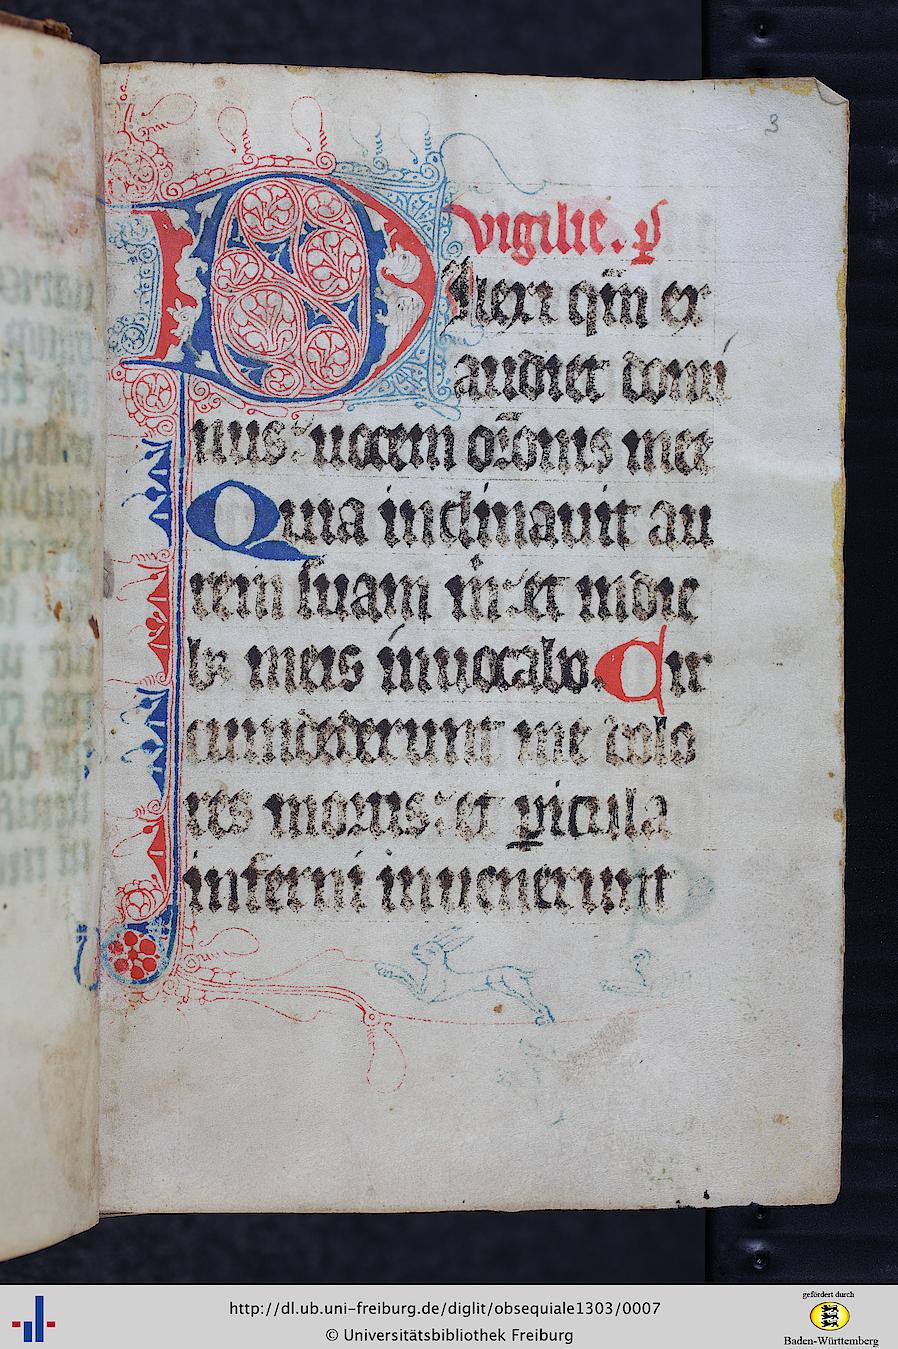 3
vigilie. p̄s
Dilexi qm̄ ex
audiet domi
nus: uocem or̄onis mee
Quia inclinauit au
rem suam m̄: et in die
bꝫ meis inuocabo. Cir
cumdederunt me dolo
res mortis: et ꝑicula
inferni inuenerunt
http://dl.ub.uni-freiburg.de/diglit/obsequiale1303/0007
© Universitätsbibliothek Freiburg
gefördert durch
Baden-Württemberg